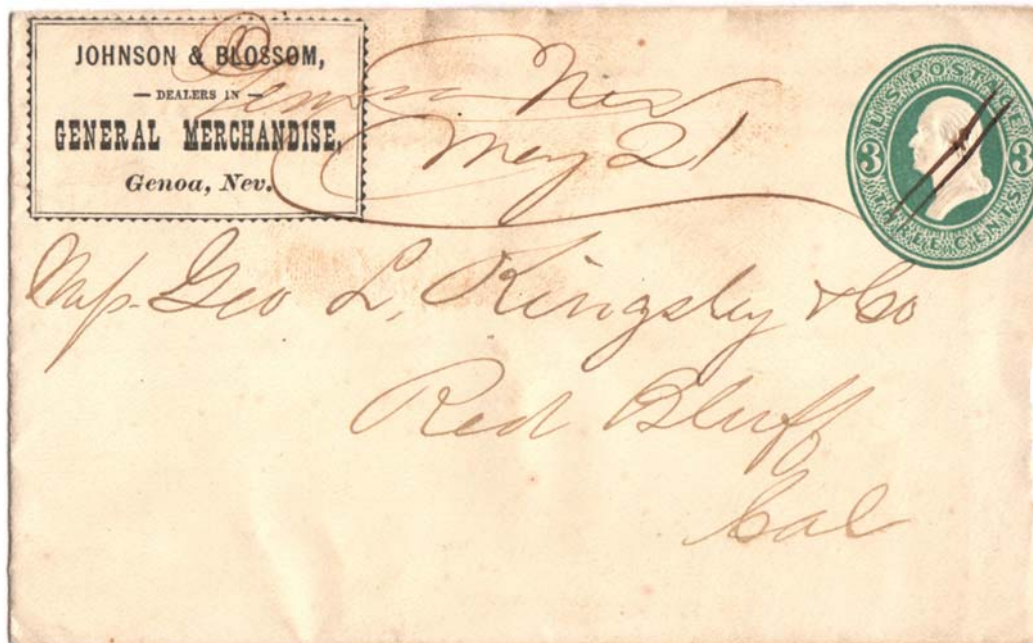 JOHNSON & BLOSSOM,
— DEALERS IN —
GENERAL MERCHANDISE,
Genoa, Nev.
Genoa Nev
May 21
U.S. POSTAGE
3 3
THREE CENTS
Geo L. Kingsley & Co
Red Bluff
Cal